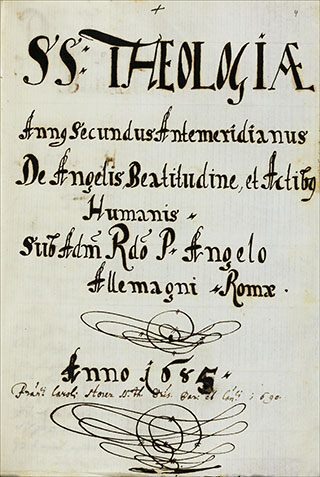 +
4
SS: THEOLOGIÆ
Anno Secundus Antemeridianus
De Angelis Beatitudine, et Actibq
Humanis
Sub Adm̃ Rdõ P. Angelo
Allemagni Romæ.
Anno 1685
Caroli